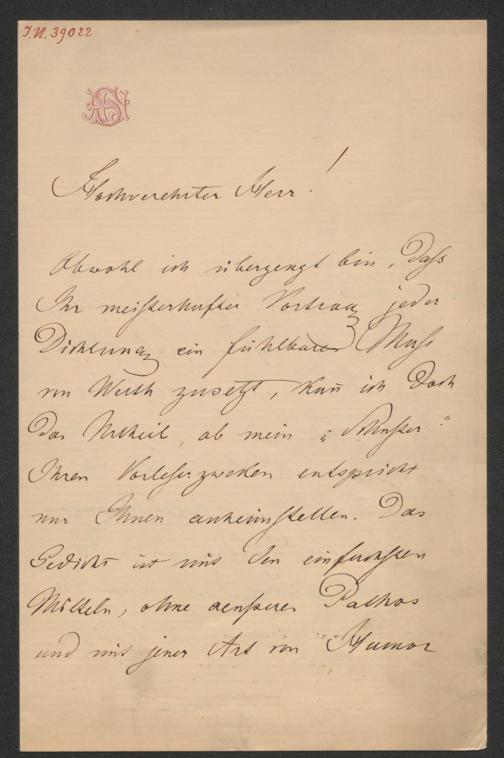 I.N. 39022
Hochverehrter Herr!
Obwohl ich überzeugt bin, daß
Ihr meisterhafter Vortrag jeder
Dichtung ein fühlbares Maß
von Werth zusetzt, kann ich doch
das Urtheil, ob mein „Schuster“
Ihren Vorleserzwecken entspricht
nur Ihnen anheimstellen. Das
Gedicht ist mit den einfachsten
Mitteln, ohne aeusseren Pathos
und mit jener Art von Humor